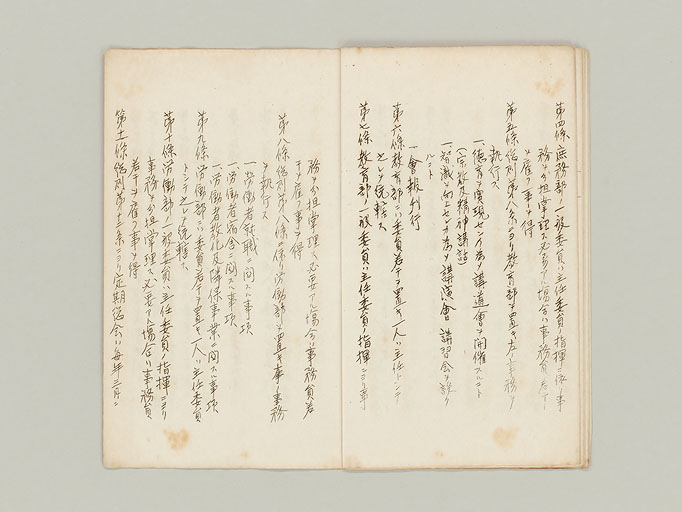 第四條 庶務部ノ一般委員ハ主任委員ノ指揮ニ依リ事
務ヲ分担掌理ス必要アル場合ハ事務員若干
ヲ雇フ事ヲ得
第五條 總則第八條ニヨリ教育部ヲ置キ左ノ事務ヲ
執行ス
一、德育ヲ實現セン為メ講道會ヲ開催スルコト
(宗教及精神講話)
一、智識ヲ向上セシムル為メ講演會講習會ヲ設ク
ルコト
一、會報刊行
第六條 教育部ハ委員若干ヲ置キ一人ハ主任トシテ
之レヲ統轄ス
第七條 教育部ノ一般委員ハ主任委員ノ指揮ニヨリ事
務ヲ分担掌理ス必要アル場合ハ事務員若
干ヲ雇フ事ヲ得
第八條 總則第八條ニ依リ労働部ヲ置キ左ノ事務
ヲ執行ス
一、労働者就職ニ関スル事項
一、労働者宿舎ニ関スル事項
一、労働者教化及隣保事業ニ関スル事項
第九條 労働部ハ委員若干ヲ置キ一人ハ主任委員
トシテ之レヲ統轄ス
第十條 労働部ノ一般委員ハ主任委員ノ指揮ニヨリ
事務ヲ分担掌理ス必要アル場合ハ事務員
若干ヲ雇フ事ヲ得
第十一條 總則第十三條ニヨリ定期總会ハ毎年三月ニ